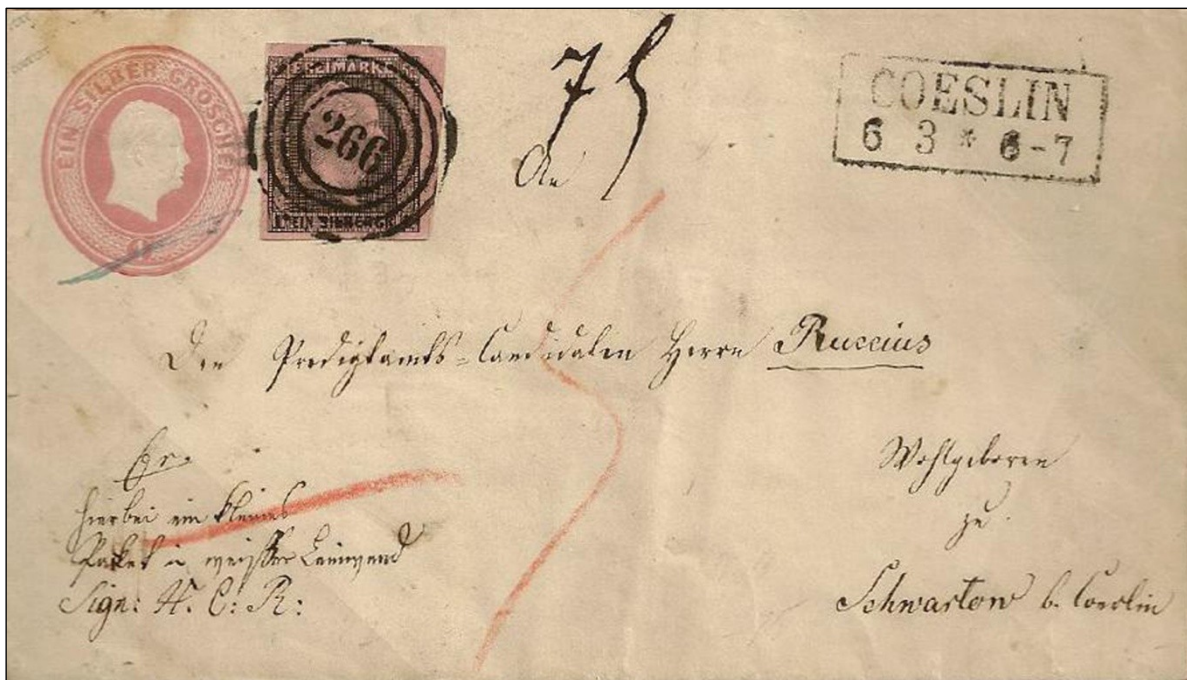 EIN SILBER GROSCHEN
FREIMARKE
266
EIN SILBERGR.
COESLIN
6 3 * 6-7
An
Den Predigtamts-Candidaten Herrn Ruccius
Wohlgeboren
zu
Schwartow b. Coerlin
Fr.
hierbei ein kleines
Paket in weißer Leinwand
Sign: H. C. R: